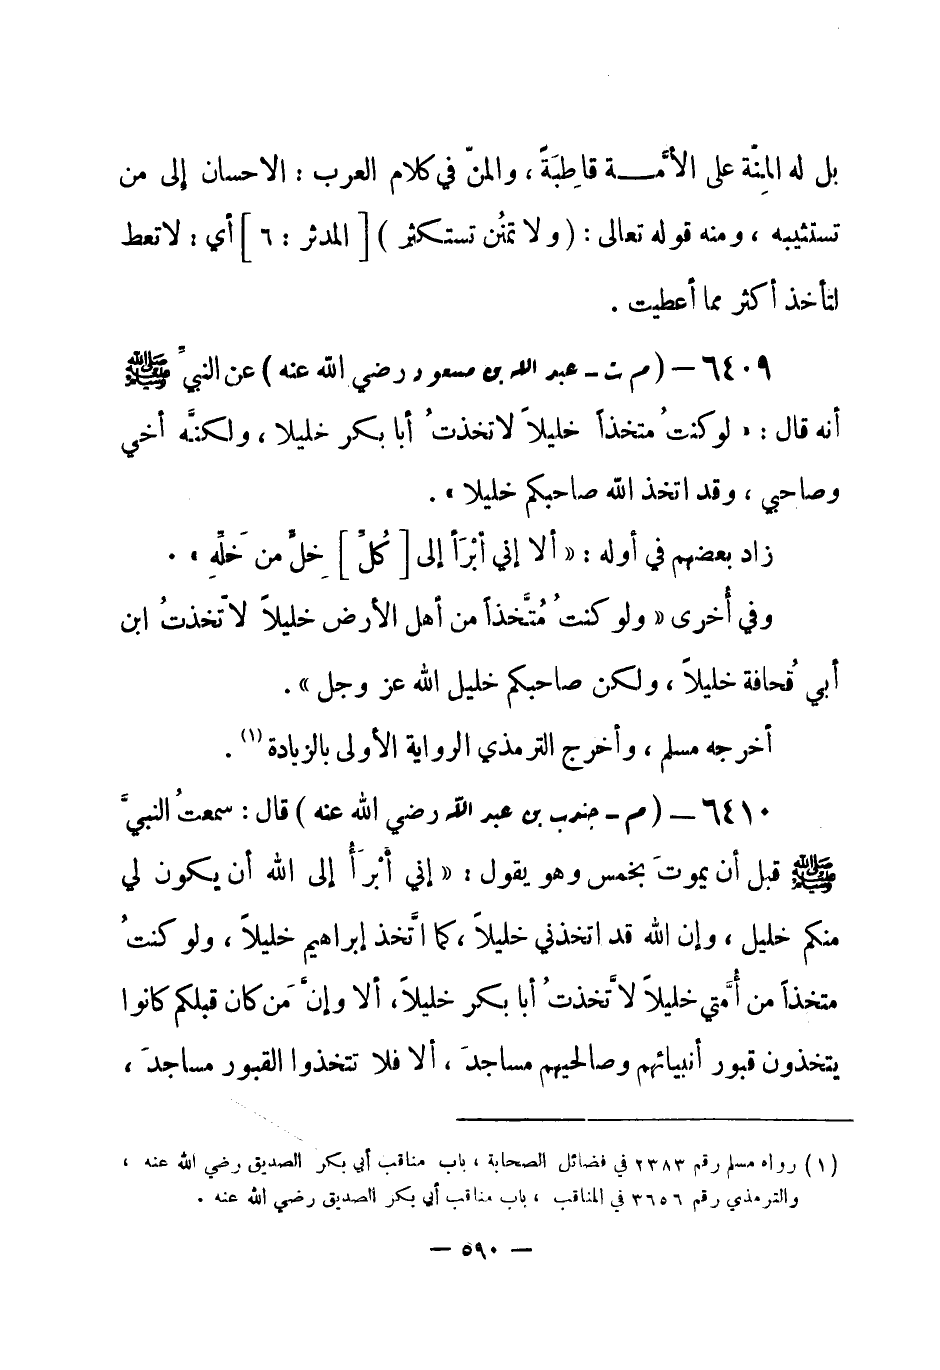 بل له المِنَّة على الأُمَّـــة قاطِبَةً ، والمنّ في كلام العرب : الاحسان إلى من
تستثيبه ، ومنه قوله تعالى : ( ولا تمنُن تستكثر ) [ المدثر : ٦ ] أي : لاتعط
لتأخذ أكثر مما أعطيت .
٦٤٠٩ – ( م ت – عبد الله بن مسعود رضي الله عنه ) عن النبيِّ ﷺ
أنه قال : « لو كنتُ متخذاً خليلاً لاتخذتُ أبا بكر خليلا ، ولكنَّه أخي
وصاحبي ، وقد اتخذ الله صاحبكم خليلا » .
زاد بعضهم في أوله : « ألا إني أبْرَأ إلى [ كُلِّ ] خِلٍّ من خَلِّهِ » .
وفي أُخرى « ولو كنتُ مُتَّخذاً من أهل الأرض خليلاً لاتَّخذتُ ابن
أبي قُحافة خليلاً ، ولكن صاحبكم خليل الله عز وجل » .
أخرجه مسلم ، وأخرج الترمذي الرواية الأولى بالزيادة (١) .
٦٤١٠ – ( م – جندب بن عبد الله رضي الله عنه ) قال : سمعتُ النبيَّ
ﷺ قبل أن يموتَ بخمس وهو يقول : « إني أَبْرَأُ إلى الله أن يكون لي
منكم خليل ، وإن الله قد اتخذني خليلاً ، كما اتَّخذ إبراهيم خليلاً ، ولو كنتُ
متخذاً من أُمَّتي خليلاً لاتَّخذتُ أبا بكر خليلاً ، ألا وإنَّ مَن كان قبلكم كانوا
يتخذون قبور أنبيائهم وصالحيهم مساجدَ ، ألا فلا تتخذوا القبور مساجدَ ،
(١) رواه مسلم رقم ٢٣٨٣ في فضائل الصحابة ، باب مناقب أبي بكر الصديق رضي الله عنه ،
والترمذي رقم ٣٦٥٦ في المناقب ، باب مناقب أبي بكر الصديق رضي الله عنه .
– ٥٩٠ –